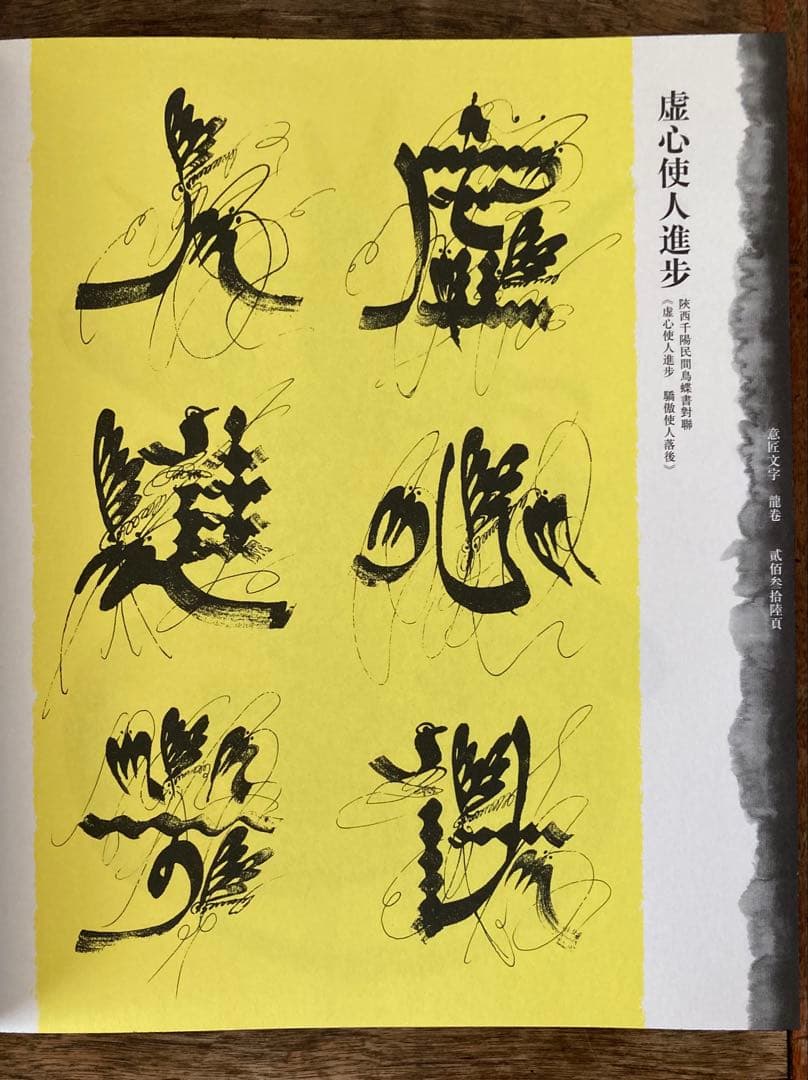 虚心使人進步
陝西千陽民間鳥蝶書對聯
《虚心使人進步 驕傲使人落後》
虚心使
人進步
意匠文字 龍卷 貳佰叁拾陸頁